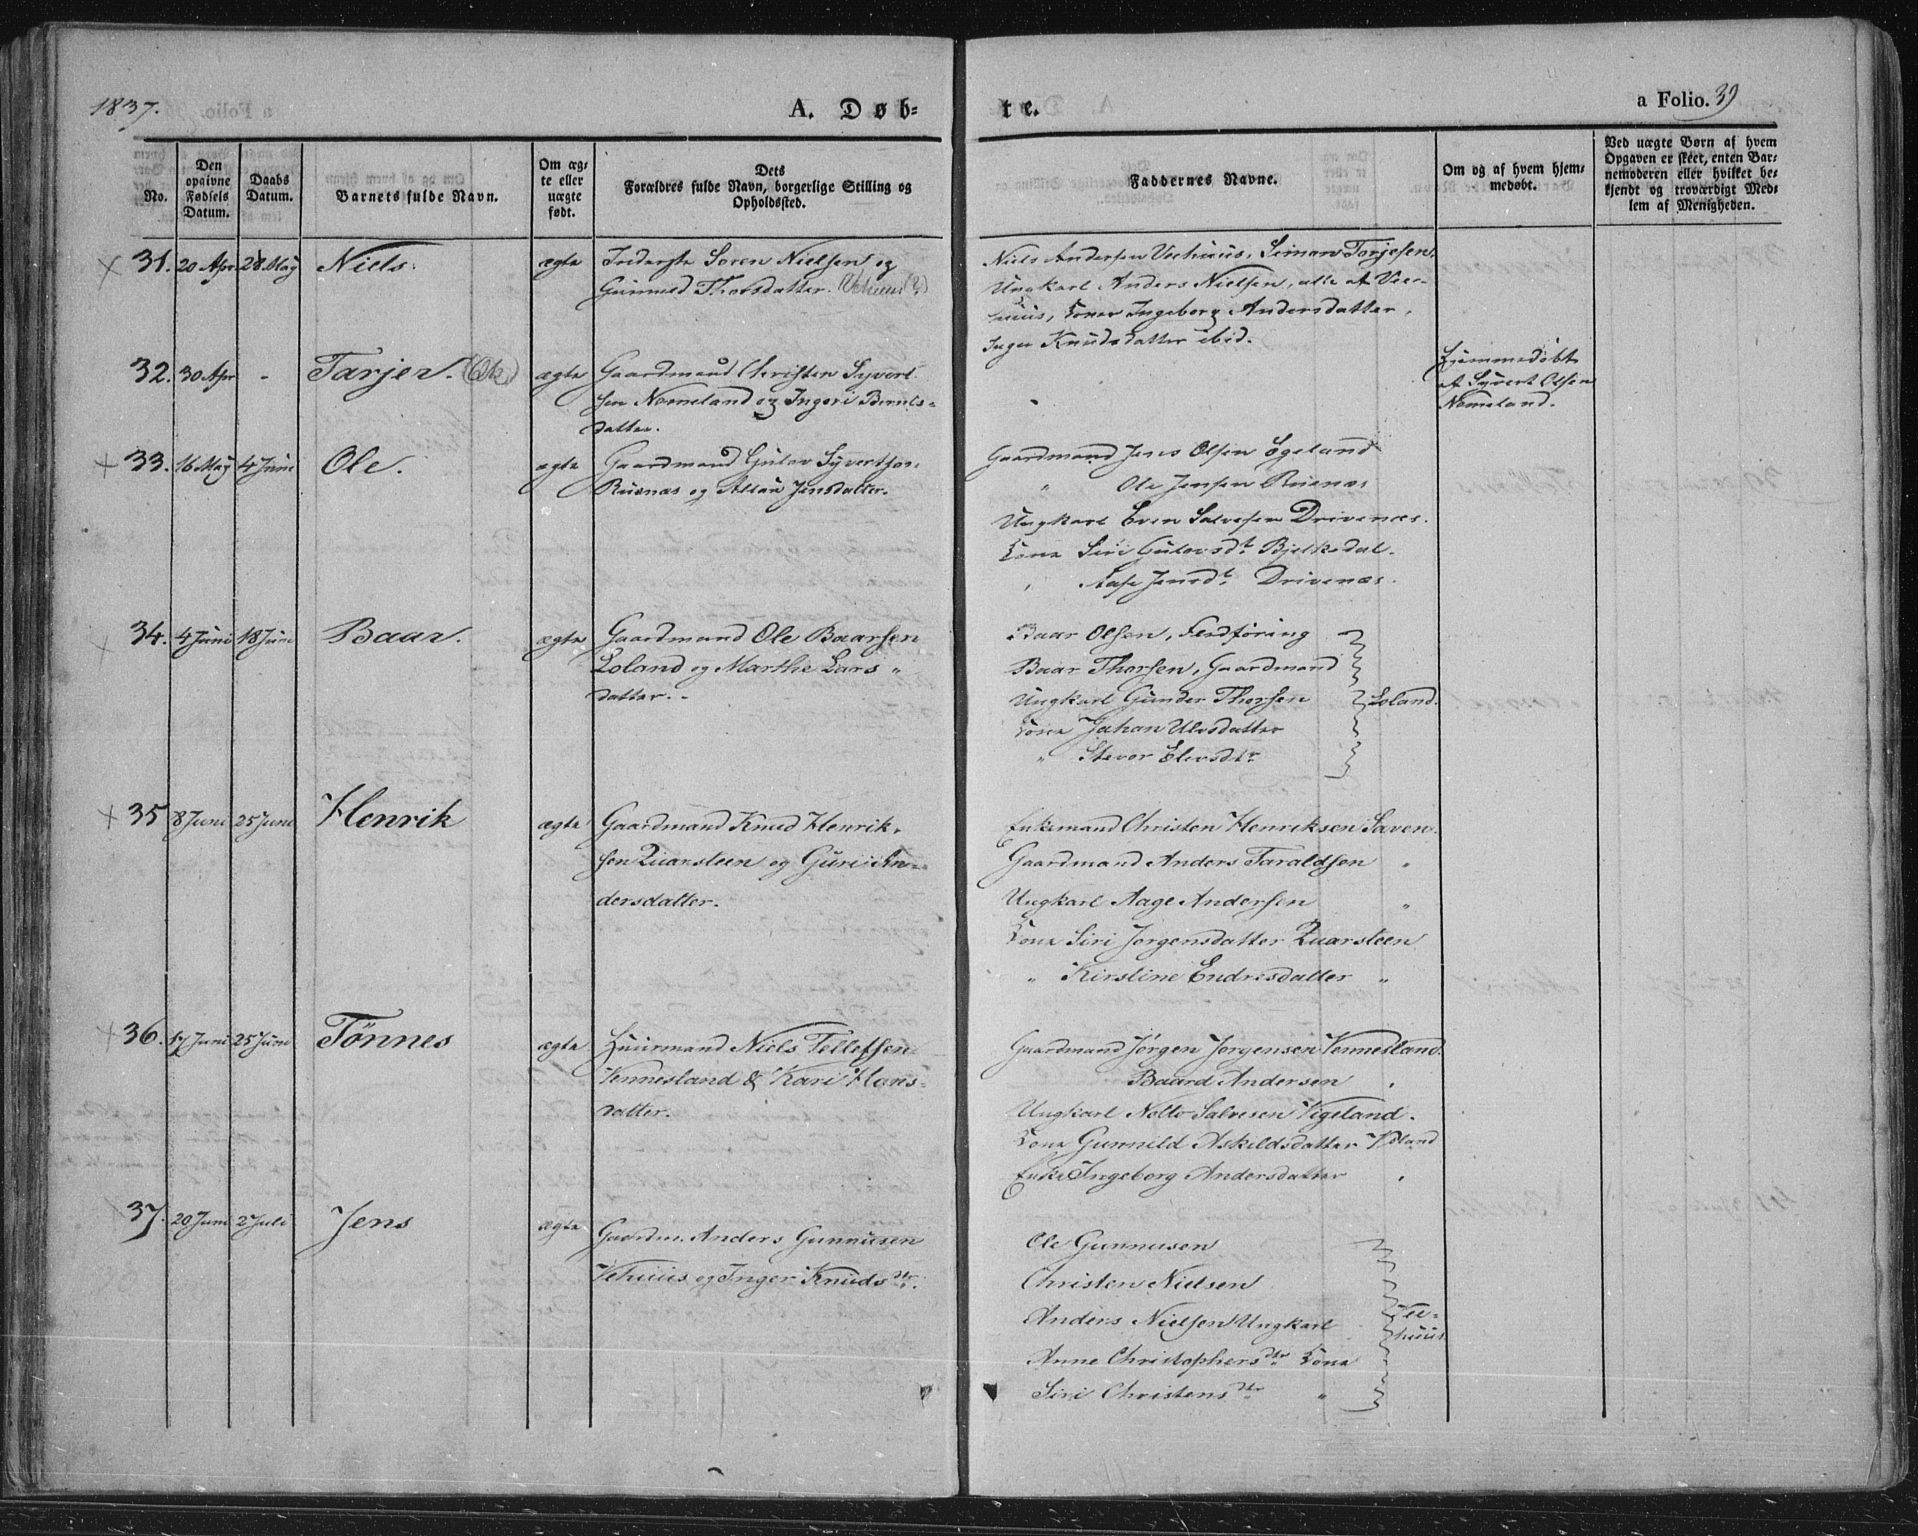 1837.
A. Døb-
te.
a Folio. 39
No.
Den opgivne Fødsels Datum.
Daabs Datum.
Barnets fulde Navn.
Om ægte eller uægte født.
Dets
Forældres fulde Navn, borgerlige Stilling og
Opholdssted.
Faddernes Navne.
Om og af hvem hjem-
medøbt.
Ved uægte Børn af hvem
Opgaven er skeet, enten Bar-
nemoderen eller hvilket be-
kjendt og troværdigt Med-
lem af Menigheden.
31. 20 Apr 28 May Niels. ægte Søren Nielsen og
Gunnild Thorsdatter. (Vehuus?)
Niels Andersen Veehuus, Simon Torjesen,
Ungkarl Anders Nielsen, alle af Vee-
huus, Kone Ingeborg Andersdatter,
Inger Knudsdatter ibid.
32. 30 Apr - Tarjer. ægte Gaardmand Christen Syvert-
sen Nomeland og Ingeri Bernts-
datter.
Hjemmedøbt
af Syvert Olsen
Nomeland.
33. 16 May 4 Juni Ole. ægte Gaardmand Gulov Syvertsen
Ruenæs og Jensdatter.
Gaardmand Jens Olsen Egeland
" Ole Jensen Ruenæs
Ungkarl Even Salvesen Drivenæs.
Kone Siri Gulovsdt. Bjelkedal.
" Aase Jensdt. Drivenæs.
34. 4 Juni 18 Juni Baar. ægte Gaardmand Ole Baarsen
Loland og Marthe Lars-
datter.
Baar Olsen, Fledføring
Baar Thorsen, Gaardmand
Ungkarl Gunder Thorsen Loland.
Kone Johan Ulvsdatter
" Stevor Elevsdtr
35 8 Juni 25 Juni Henrik ægte Gaardmand Knud Henrik-
sen Quarsteen og Guri An-
dersdatter.
Enkemand Christen Henriksen Saven.
Gaardmand Anders Taraldsen "
Ungkarl Aage Andersen "
Kone Siri Jørgensdatter Quarsteen
" Kirstine Endresdatter "
36. 17 Juni 25 Juni Tønnes ægte Huusmand Niels Tellefsen
Vennesland & Kari Hans-
datter.
Gaardmand Jørgen Jørgensen Vennesland.
Baard Andersen "
Ungkarl Salvesen Vigeland.
Kone Gunnild Askildsdatter
Enke Ingeborg Andersdatter "
37. 20 Juni 2 Juli Jens ægte Gaardm. Anders Gunnusen
Vehuus og Inger Knudsdtr.
Ole Gunnusen
Christen Nielsen
Anders Nielsen Ungkarl Vee-
huus
Anne Christophersdtr Kone
Siri Christensdtr "